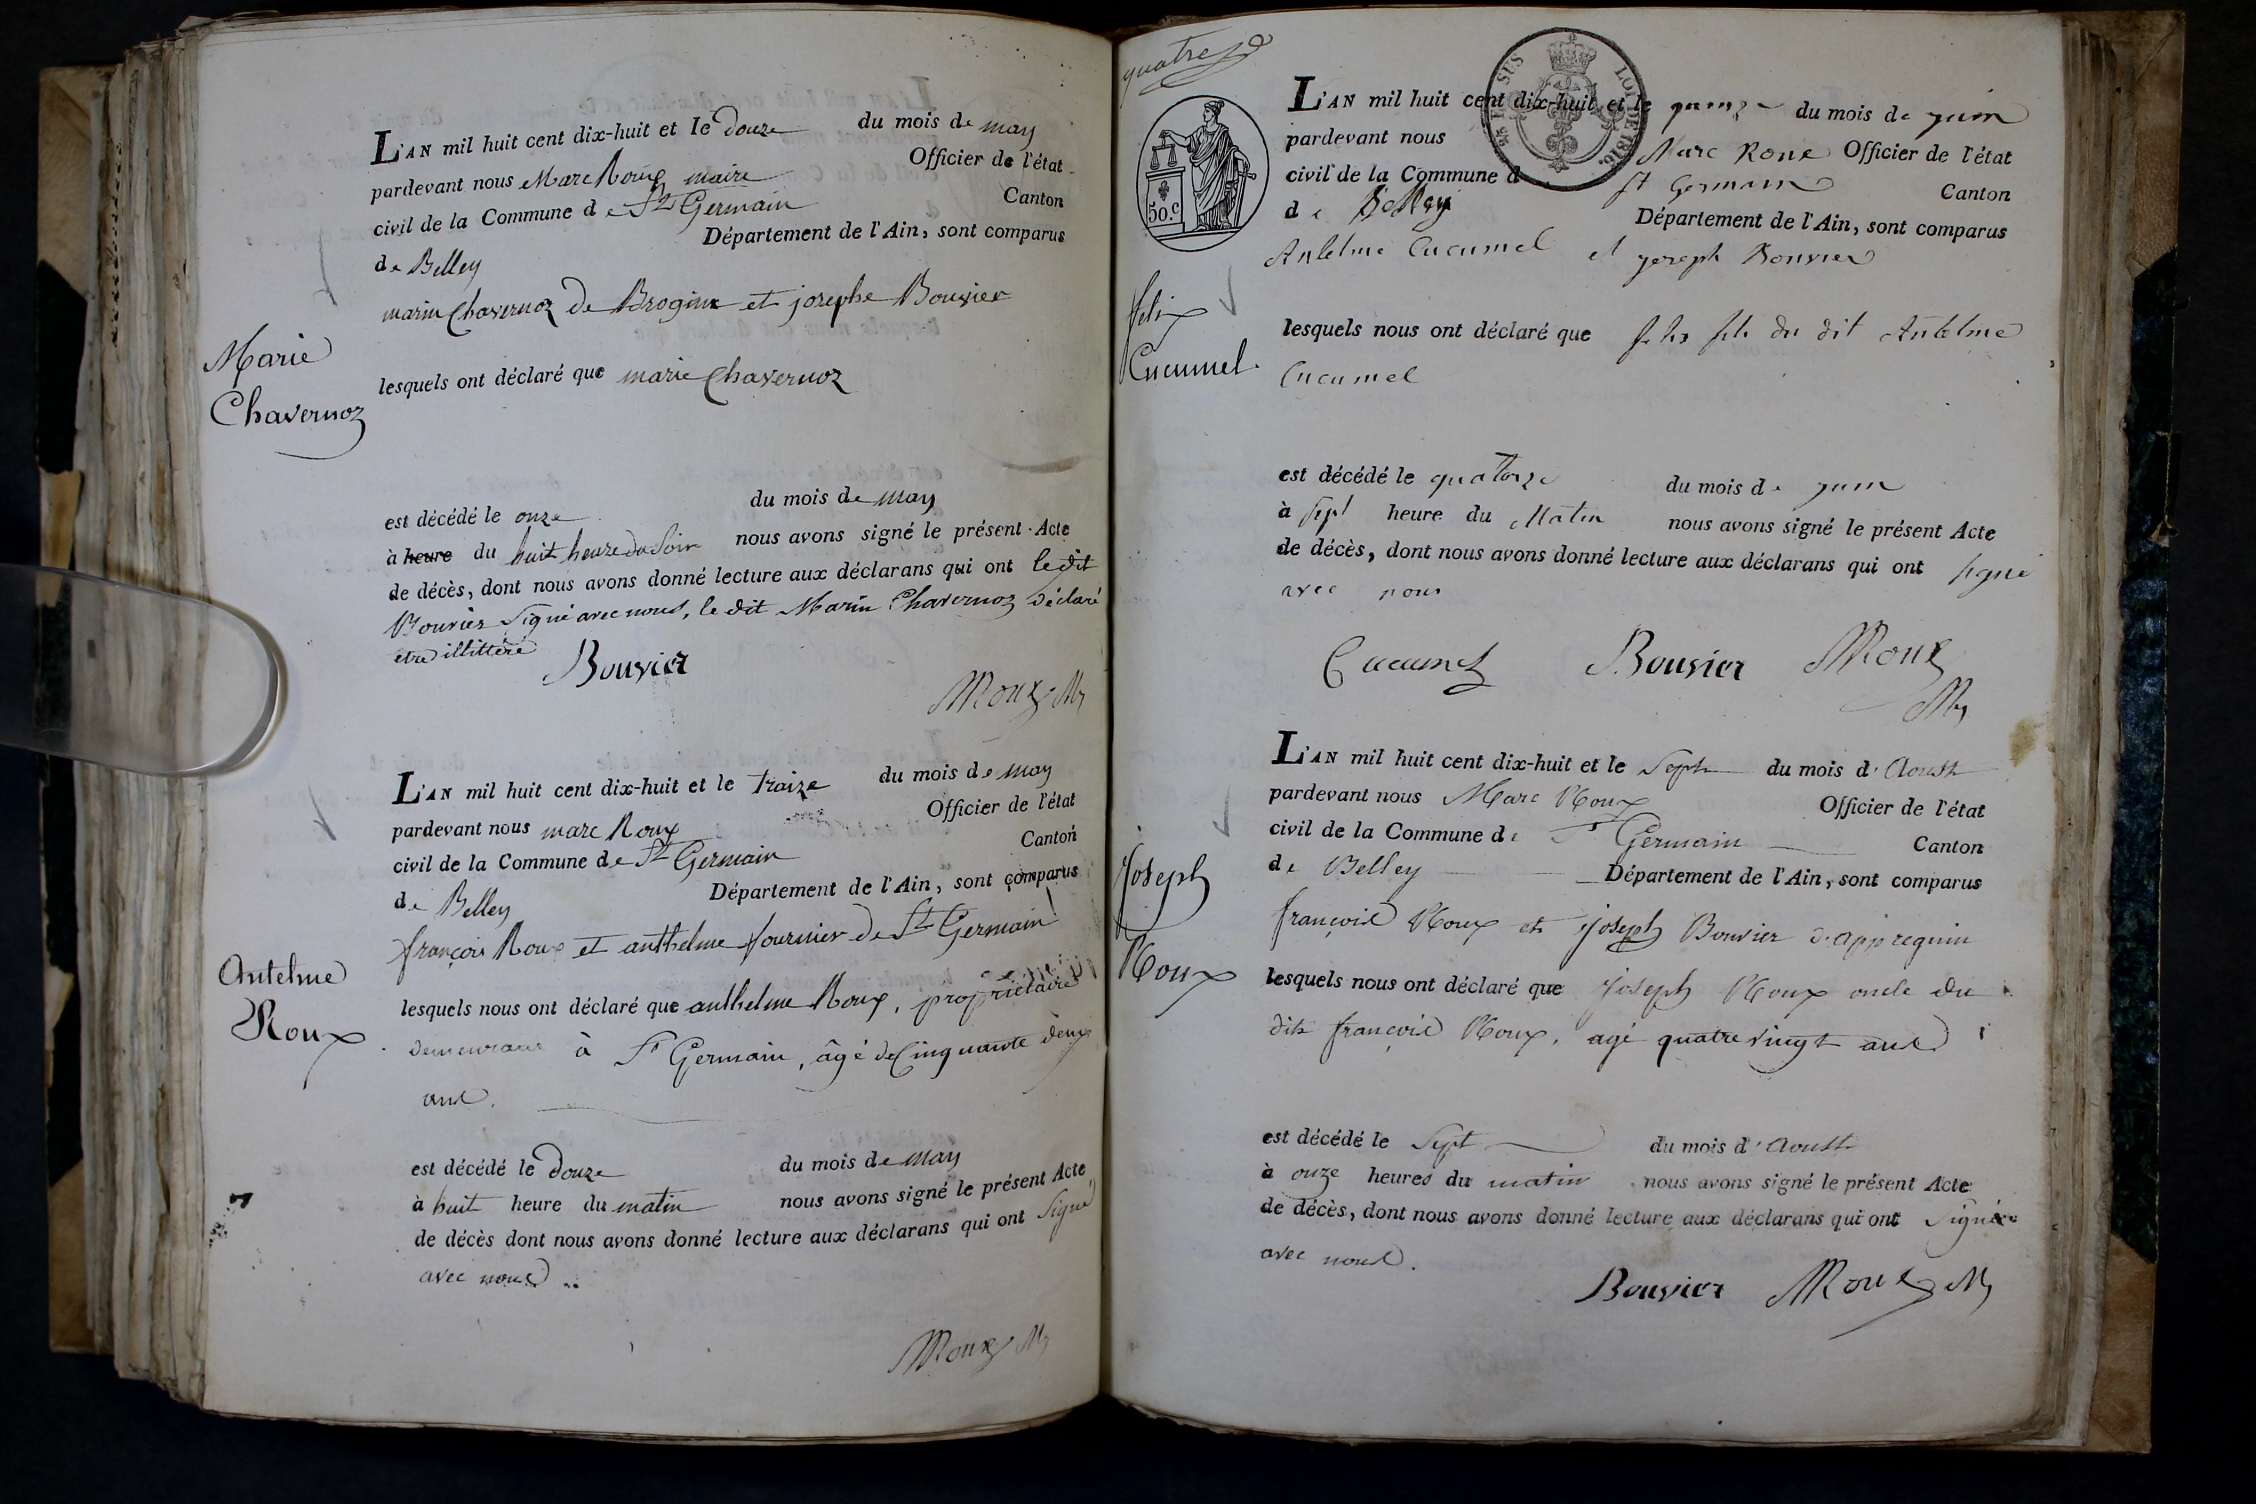 Marie
Chavernoz
L'AN mil huit cent dix-huit et le douze du mois de may
pardevant nous Marc Roux maire Officier de l'état
civil de la Commune de St Germain Canton
de Belley Département de l'Ain, sont comparus
marin Chavernoz de Brognin et josephe Bouvier
lesquels ont déclaré que marie Chavernoz
est décédé le onze du mois de may
à heure du huit heure du Soir nous avons signé le présent Acte
de décès, dont nous avons donné lecture aux déclarans qui ont le dit
Bouvier Signé avec nous, le dit Marin Chavernoz Déclaré
etre illittéré
Bouvier
MRoux M
Antelme
Roux
L'AN mil huit cent dix-huit et le traize du mois de may
pardevant nous marc Roux Officier de l'état
civil de la Commune de St Germain Canton
de Belley Département de l'Ain, sont comparus
françois Roux et anthelme fournier de St Germain
lesquels nous ont déclaré que anthelme Roux, propriétaire
demeurant à St Germain, âgé de Cinquante deux
ans.
est décédé le douze du mois de may
à huit heure du matin nous avons signé le présent Acte
de décès dont nous avons donné lecture aux déclarans qui ont Signé
avec nous
MRoux M
quatre
50.c
LOI DE 1816.
felix
Cucumel
L'AN mil huit cent dix-huit et le quinze du mois de juin
pardevant nous Marc Roux Officier de l'état
civil de la Commune d St Germain Canton
de Belley Département de l'Ain, sont comparus
Antelme Cucumel et joseph Bouvier
lesquels nous ont déclaré que felix fils du dit Antelme
Cucumel
est décédé le quatorze du mois de juin
à sept heure du Matin nous avons signé le présent Acte
de décès, dont nous avons donné lecture aux déclarans qui ont signé
avec nous
Cucumel Bouvier MRoux
M
Joseph
Roux
L'AN mil huit cent dix-huit et le Sept du mois d'Aoust
pardevant nous Marc Roux Officier de l'état
civil de la Commune de St Germain Canton
de Belley Département de l'Ain, sont comparus
françois Roux et joseph Bouvier d'appregnin
lesquels nous ont déclaré que joseph Roux oncle du
dit françois Roux, agé quatre vingt ans
est décédé le Sept du mois d'Aoust
à onze heures du matin nous avons signé le présent Acte
de décès, dont nous avons donné lecture aux déclarans qui ont Signé
avec nous.
Bouvier MRoux M